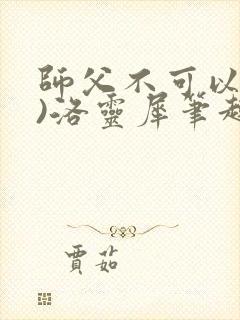 師父不可以
)洛靈犀筆趣
賈茹